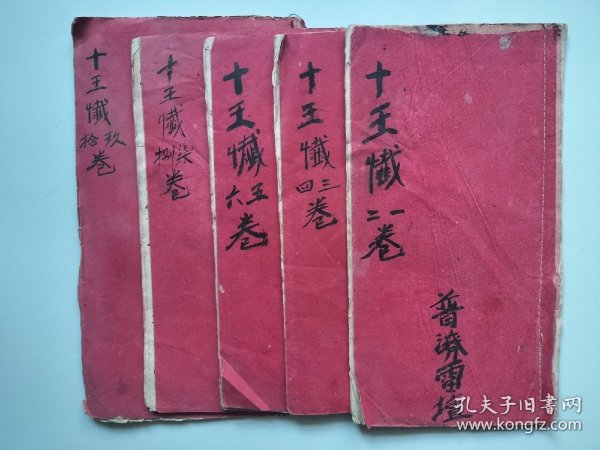 十王懺
一二
卷
普濟雷壇
十王懺
三四
卷
十王懺
五六
卷
十王懺
柒捌
卷
十王懺
玖拾
卷
孔夫子旧書网
www.kongfz.com